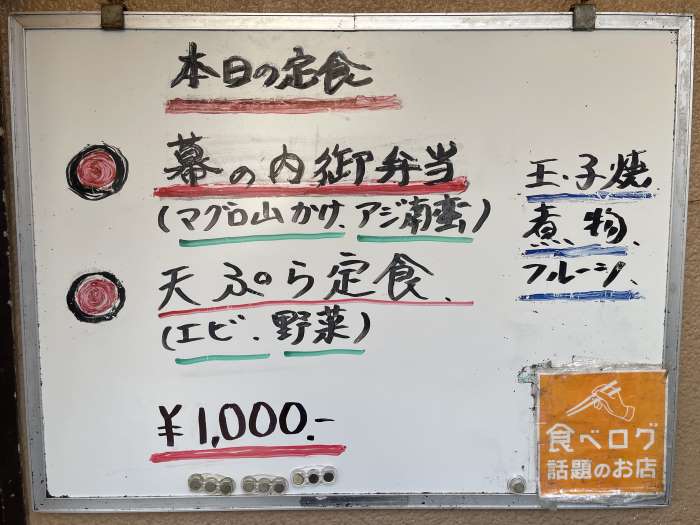 本日の定食
幕の内御弁当
(マグロ山かけ、アジ南蛮)
天ぷら定食、
(エビ、野菜)
¥1,000.-
玉子焼、
煮物、
フルーツ、
食べログ
話題のお店